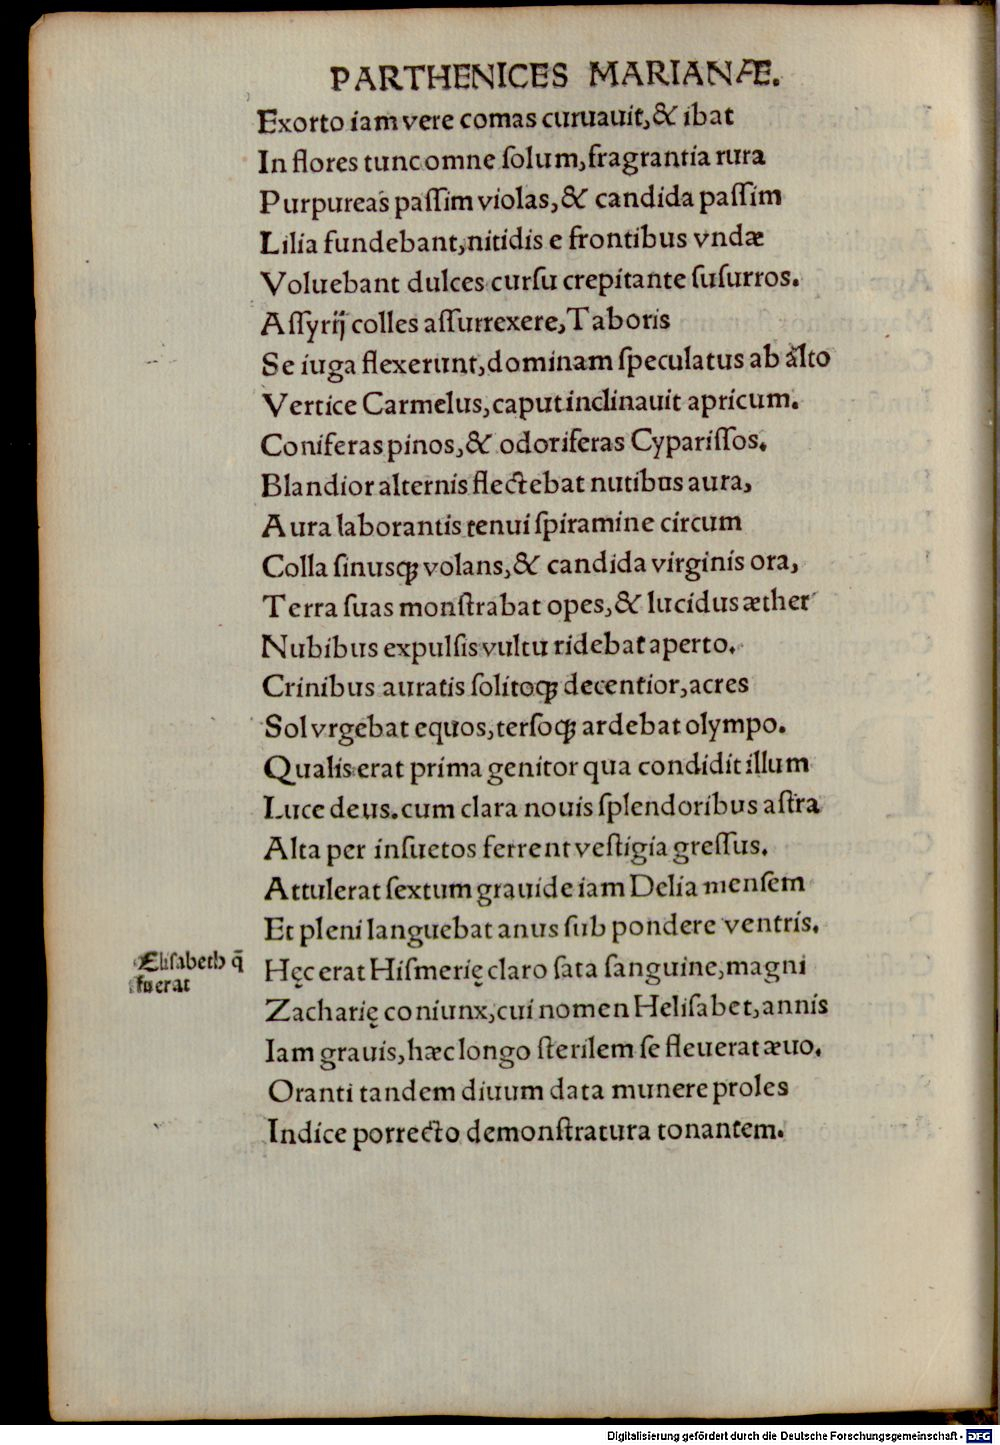 PARTHENICES MARIANÆ.
Exorto iam vere comas curuauit, & ibat
In flores tunc omne ſolum, fragrantia rura
Purpureas paſſim violas, & candida paſſim
Lilia fundebant, nitidis e frontibus vndæ
Voluebant dulces curſu crepitante ſuſurros.
Aſſyrij colles aſſurrexere, Taboris
Se iuga flexerunt, dominam ſpeculatus ab alto
Vertice Carmelus, caput inclinauit apricum.
Coniferas pinos, & odoriferas Cypariſſos.
Blandior alternis flectebat nutibus aura,
Aura laborantis tenui ſpiramine circum
Colla ſinusꝗ volans, & candida virginis ora,
Terra ſuas monſtrabat opes, & lucidus æther
Nubibus expulſis vultu ridebat aperto.
Crinibus auratis ſolitoꝗ decentior, acres
Sol vrgebat equos, terſoꝗ ardebat olympo.
Qualis erat prima genitor qua condidit illum
Luce deus. cum clara nouis ſplendoribus aſtra
Alta per inſuetos ferrent veſtigia greſſus.
Attulerat ſextum grauide iam Delia menſem
Et pleni languebat anus ſub pondere ventris.
Elisabeth q̃
fuerat
Hęc erat Hiſmerię claro ſata ſanguine, magni
Zacharię coniunx, cui nomen Heliſabet, annis
Iam grauis, hæc longo ſterilem ſe fleuerat æuo.
Oranti tandem diuum data munere proles
Indice porrecto demonſtratura tonantem.
Digitalisierung gefördert durch die Deutsche Forschungsgemeinschaft - DFG